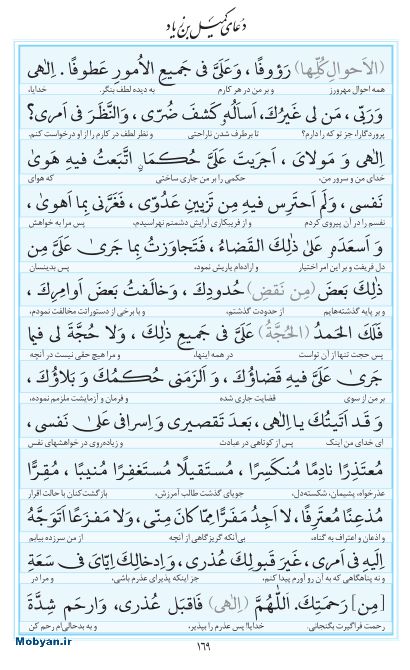 دعای کمیل بن زیاد
(الاَحوالِ كُلِّها) رَؤوفًا ، وَعَلَیَّ فی جَمیعِ الاُمورِ عَطوفًا . اِلٰهی
همه احوال مهرورز و بر من در هر کارم به دیده لطف بنگر. خدایا،
وَرَبّی ، مَن لی غَیرُكَ، اَسأَلُهُ كَشفَ ضُرّی ، وَالنَّظَرَ فی اَمری؟
پروردگارا، جز تو که را دارم؟ تا برطرف شدن ناراحتی و نظر لطف در کارم را از او درخواست کنم.
اِلٰهی وَ مَولایَ ، اَجرَیتَ عَلَیَّ حُكمًا، اِتَّبَعتُ فیهِ هَویٰ
خدای من و سرور من، حکمی را بر من جاری ساختی که هوای
نَفسی ، وَلَم اَحتَرِس فیهِ مِن تَزیینِ عَدُوّی ، فَغَرَّنی بِما اَهویٰ ،
نفسم را در آن پیروی کردم و از فریبکاری آرایش دشمنم نهراسیدم، پس مرا به خواهش
وَ اَسعَدَهُ عَلیٰ ذٰلِكَ القَضاءُ ، فَتَجاوَزتُ بِما جَریٰ عَلَیَّ مِن
دل فریفت و بر این امر اختیار و اراده‌ام یاریش نمود، پس بدینسان
ذٰلِكَ بَعضَ (مِن نَقضِ) حُدودِكَ ، وَخالَفتُ بَعضَ اَوامِرِكَ ،
و بر پایه گذشته‌هایم از حدودت گذشتم، و با برخی از دستوراتت مخالفت نمودم،
فَلَكَ الحَمدُ (الحُجَّةُ) عَلَیَّ فی جَمیعِ ذٰلِكَ ، وَلا حُجَّةَ لی فیما
پس حجت تنها از آن توست در همه اینها، و مرا هیچ حقی نیست در آنچه
جَریٰ عَلَیَّ فیهِ قَضاؤُكَ ، وَ اَلزَمَنی حُكمُكَ وَ بَلاؤُكَ ،
بر من از سوی قضایت جاری شده و فرمان و آزمایشت ملزمم نموده،
وَ قَد اَتَیتُكَ یا اِلٰهی ، بَعدَ تَقصیری وَ اِسرافی عَلیٰ نَفسی ،
ای خدای من اینک پس از کوتاهی در عبادت و زیاده‌روی در خواهشهای نفس
مُعتَذِرًا نادِمًا مُنكَسِرًا ، مُستَقیلًا مُستَغفِرًا مُنیبًا ، مُقِرًّا
عذرخواه، پشیمان، شکسته‌دل، جویای گذشت طالب آمرزش، بازگشت‌کنان با حالت اقرار
مُذعِنًا مُعتَرِفًا ، لا اَجِدُ مَفَرًّا مِمّا كانَ مِنّی ، وَلا مَفزَعًا اَتَوَجَّهُ
و اذعان و اعتراف به گناه، بی‌آنکه گریزگاهی از آنچه از من سرزده بیابم
اِلَیهِ فی اَمری ، غَیرَ قَبولِكَ عُذری ، وَ اِدخالِكَ اِیّایَ فی سَعَةِ
و نه پناهگاهی که به آن رو آورم پیدا کنم، جز اینکه پذیرای عذرم باشی، و مرا در
[مِن] رَحمَتِكَ. اَللّٰهُمَّ (اِلٰهی) فَاقبَل عُذری، وَارحَم شِدَّةَ
رحمت فراگیرت بگنجانی. خدایا! پس عذرم را بپذیر، و به بدحالی‌ام رحم کن
۱۶۹
Mobyan.ir